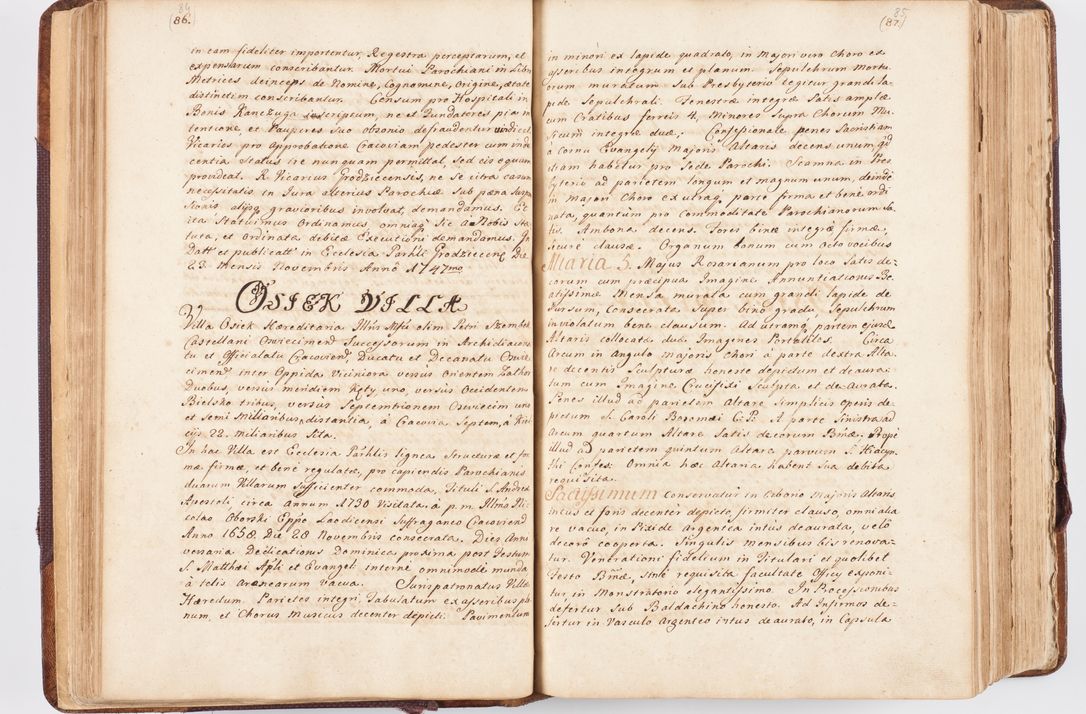 84
(86.)
in eam fideliter importentur, Regestra perceptarum, et
expensarum conscribantur. Mortui Parochiani in Libro
Metrices deinceps de Nomine, Cognomine, Origine, ætate
distinctim conscribantur. Censum pro Hospitali in
Bonis Kanczuga inscriptum, ne et Fundatores pia in
tentione, et Pauperes suo obsonio defraudentur vindicet
Vicarius pro Approbatione Cracoviam pedester cum inde
centia Status ire nunquam permittat, sed eis equum
provideat. R. Vicarius Grodziecensis, ne se citra casum
necessitatis in Jura alterius Parochiæ sub pæna Suspen
sionis alijsq gravioribus involvat, demandamus. Et
ita Statuimus Ordinamus omniaq sic à Nobis Sta
tuta, et ordinata debitæ Executioni demandamus. In
Datt et publicatt in Ecclesia Parhli Grodziecens Die
23. Mensis Novembris Annô 1747mo
OSIEK VILLA
Villa Osiek Hæreditaria Illris Mfci olim Petri Szembek
Castellani Oswiecimens Successorum in Archidiacona
tu et Officialatu Cracoviens, Ducatu et Decanatu Oswie
cimens inter Oppida Viciniora versus Orientem Zathor
Duobus, versus meridiem Kęty uno, versus Occidentem
Bielsko tribus, versus Septemtrionem Oswiecim uno
et semi Milliaribus, distantia, à Cracovia Septem, à Kiel
cijs 22. milliaribus Sita.
In hac Villa est Ecclesia Parhlis lignea Structuræ et for
mæ firmæ, et bene regulatæ, pro capiendis Parochianis
duarum Villarum Sufficienter commoda, Tituli S. Andreæ
Apostoli circa annum 1730 Visitata. à p. m. Illmo Ni
colao Oborski Eppo Laodicensi Suffraganeo Cracoviens
Anno 1658 Die 28 Novembris consecrata. Dies Anni
versaria Dedicationis Dominica proxima post Festum
S. Matthæi Apli et Evangel: interne omnimode munda
à telis Aranearum vacua. Jurispatronatus Villæ
Hæredum. Parietes integri, Tabulatum ex asseribus pla
num, et Chorus Musicus decenter depicti. Pavimentum
85
(87.)
in minori ex lapide quadrato, in Majori vero Choro ex
asseribus integrum et planum. Sepulchrum mortu
orum muratum sub Presbyterio tegitur grandi la
pide Sepulchrali. Fenestræ integræ satis amplæ
cum Cratibus ferreis 4, Minores supra Chorum Mu
sicum integræ duæ; Confessionale penes Sacristiam
à Cornu Evangelij Majoris Altaris decens unum, qd
etiam habetur pro Sede Parochi. Scamna in Pres
byterio ad parietem longum et magnum unum, deinde
in Majori Choro ex utraq parte firma et bene ordi
nata, quantum pro Commoditate Parochianorum sa
tis. Ambona decens. Fores binæ integræ firmæ,
securè clausæ. Organum bonum cum octo vocibus
Altaria 5. Majus Rosarianum pro loco satis de
corum cum præcipua Imagine Annuntiationis Be
atissimæ Mensa murata cum grandi lapide de
dursum, Consecrata super bino gradu, Sepulchrum
inviolatum bene clausum. Ad utramq partem ejusd
Altaris collocatæ duæ Imagines Portatiles. Circa
Arcum in angulo majoris Chori à parte dextra Alta
re decentis Sculpturæ honeste depictum et deaura
tum cum Imagine Crucifixi Sculpta et de-aurata.
Penes illud ad parietem Altare Simplicis operis de
pictum S. Caroli Boromæi C. P. A parte sinistra ad
Arcum quartum Altare satis decorum Bmæ. Prope
illud ad parietem quintum Altare parvum S. Hiacyn
thi Confes: Omnia hæc Altaria habent sua debita
requisita.
Sacrissimum Conservatur in Ciborio Majoris Altaris
intus et foris decenter depicto, firmiter clauso, omni alia
re vacuo, in Pixide Argentea intus deaurata, velo
decorô cooperta. Singulis mensibus bis renova
tur. Venerationi fidelium in Titulari et quolibet
Festo Bmæ, sine requisita facultate Officij exponi
tur, in Monstratorio elegantissimo. In Processionibus
defertur sub Baldachino honesto. Ad Infirmos de
fertur in Vasculo Argenteo intus deaurato, in Capsula